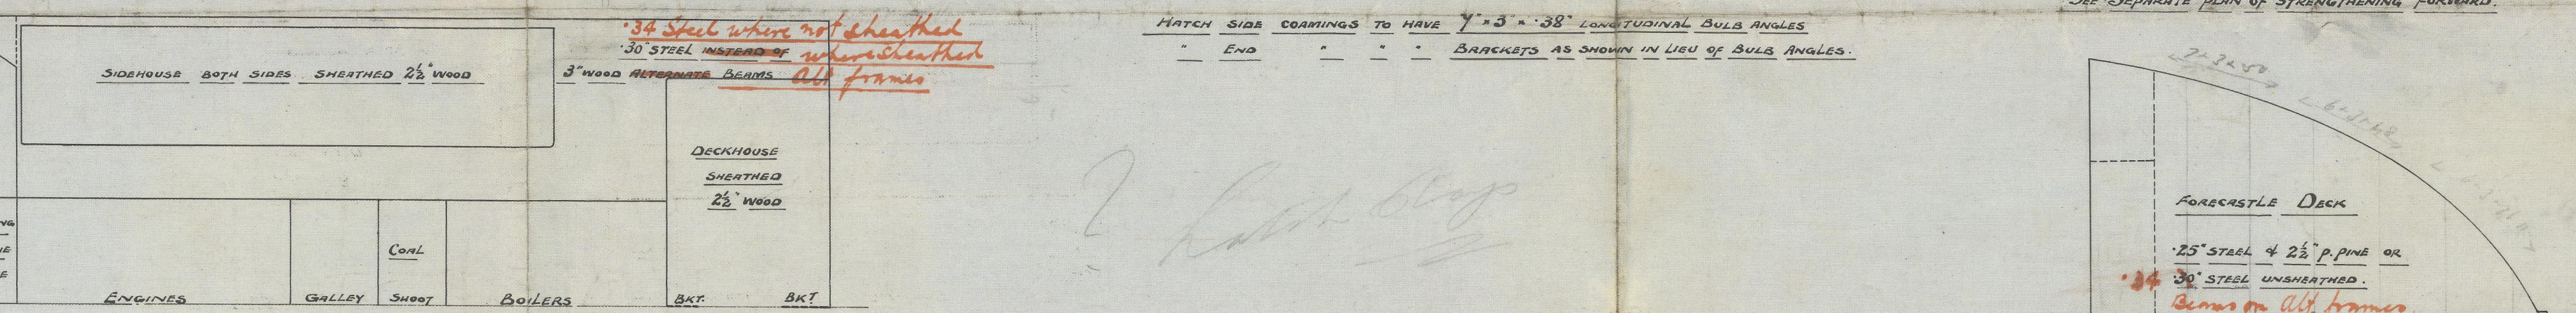 SEE SEPARATE PLAN OF STRENGTHENING FORWARD.
.34 Steel where not sheathed
.30" STEEL INSTEAD OF where sheathed
3" WOOD ALTERNATE BEAMS Alt frames
SIDEHOUSE BOTH SIDES SHEATHED 2½" WOOD
HATCH SIDE COAMINGS TO HAVE 7" × 3" × .38" LONGITUDINAL BULB ANGLES
" END " " " BRACKETS AS SHOWN IN LIEU OF BULB ANGLES.
DECKHOUSE
SHEATHED
2½" WOOD
COAL
SHOOT
ENGINES
GALLEY
BOILERS
BKT.
BKT
FORECASTLE DECK
.25" STEEL & 2½" P. PINE OR
.34 .30" STEEL UNSHEATHED.
Beams on Alt. frames